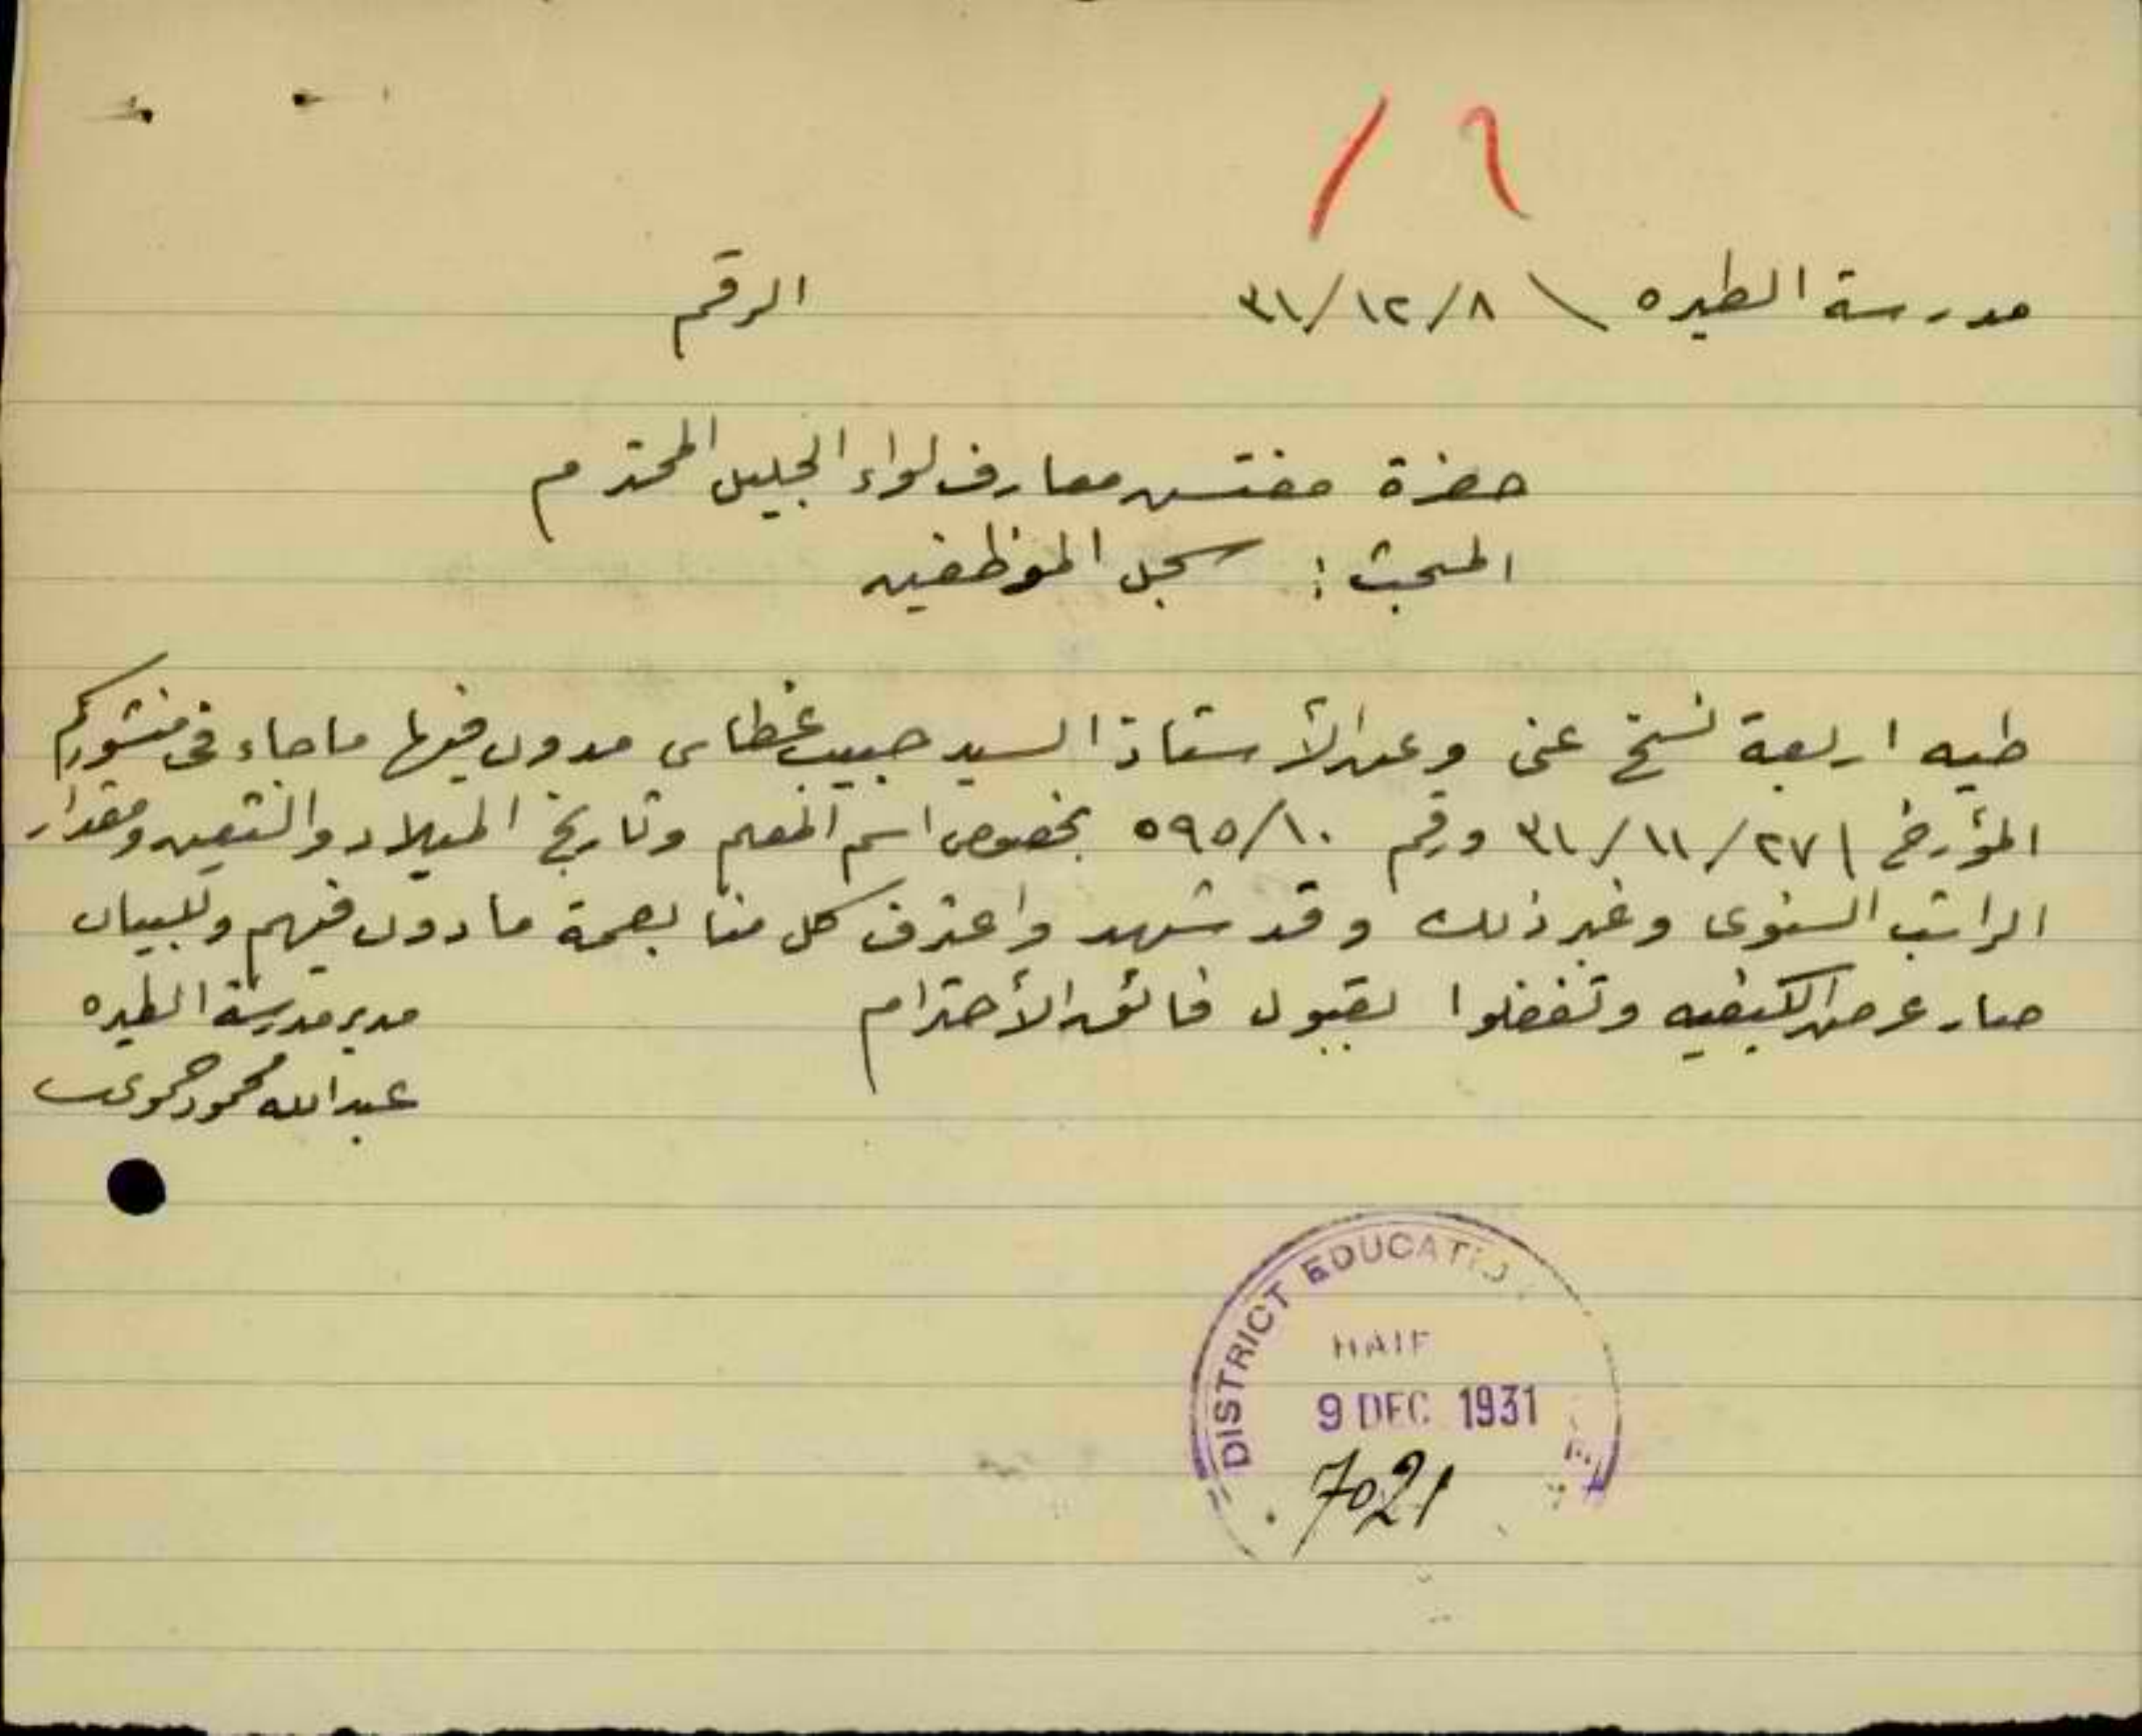 ١٦
مدرسة الطيره \ ٣١/١٢/٨ الرقم
حضرة مفتش معارف لواء الجليل المحترم
المبحث : سجل الموظفين
طيه اربعة نسخ عني وعن الأستاذ السيد حبيب غطاس مدون فيها ما جاء في منشوركم
المؤرخ \ ٣١/١١/٢٧ ورقم ٥٩٥/١٠ بخصوص اسم المعلم وتاريخ الميلاد والتعين ومقدار
الراتب السنوي وغير ذلك وقد شهد واعترف كل منا بصحة ما دون فيهم وللبيان
صار عرض الكيفيه وتفضلوا بقبول فائق الأحترام
مدير مدرسة الطيره
عبدالله محمود
DISTRICT EDUCATIO
HAIF
9 DEC 1931
7021